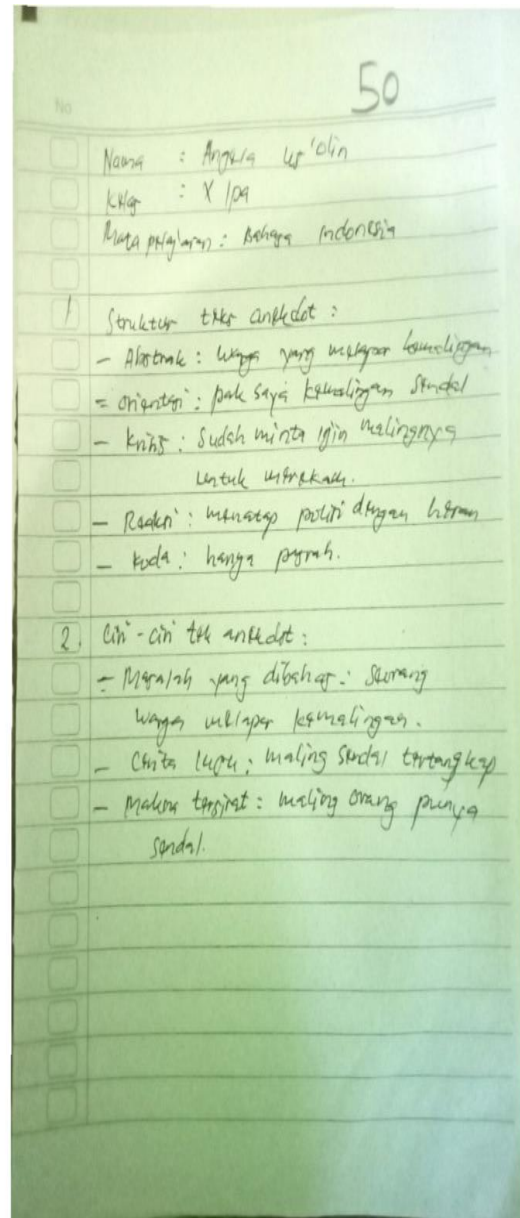 50
No
Nama : Angela
Kelas : X Ipa
Mata pelajaran : Bahasa Indonesia
1 Struktur teks anekdot :
- Abstrak : warga yang melapor kemalingan
= orientasi : pak saya kemalingan sendal
- krisis : Sudah minta izin malingnya
untuk merekam.
- Reaksi : menatap polisi dengan heran
- koda : hanya pasrah.
2. Ciri-ciri teks anekdot :
- Masalah yang dibahas : seorang
warga melapor kemalingan.
- Cerita lucu : maling sendal tertangkap
- Makna tersirat : maling orang punya
sendal.